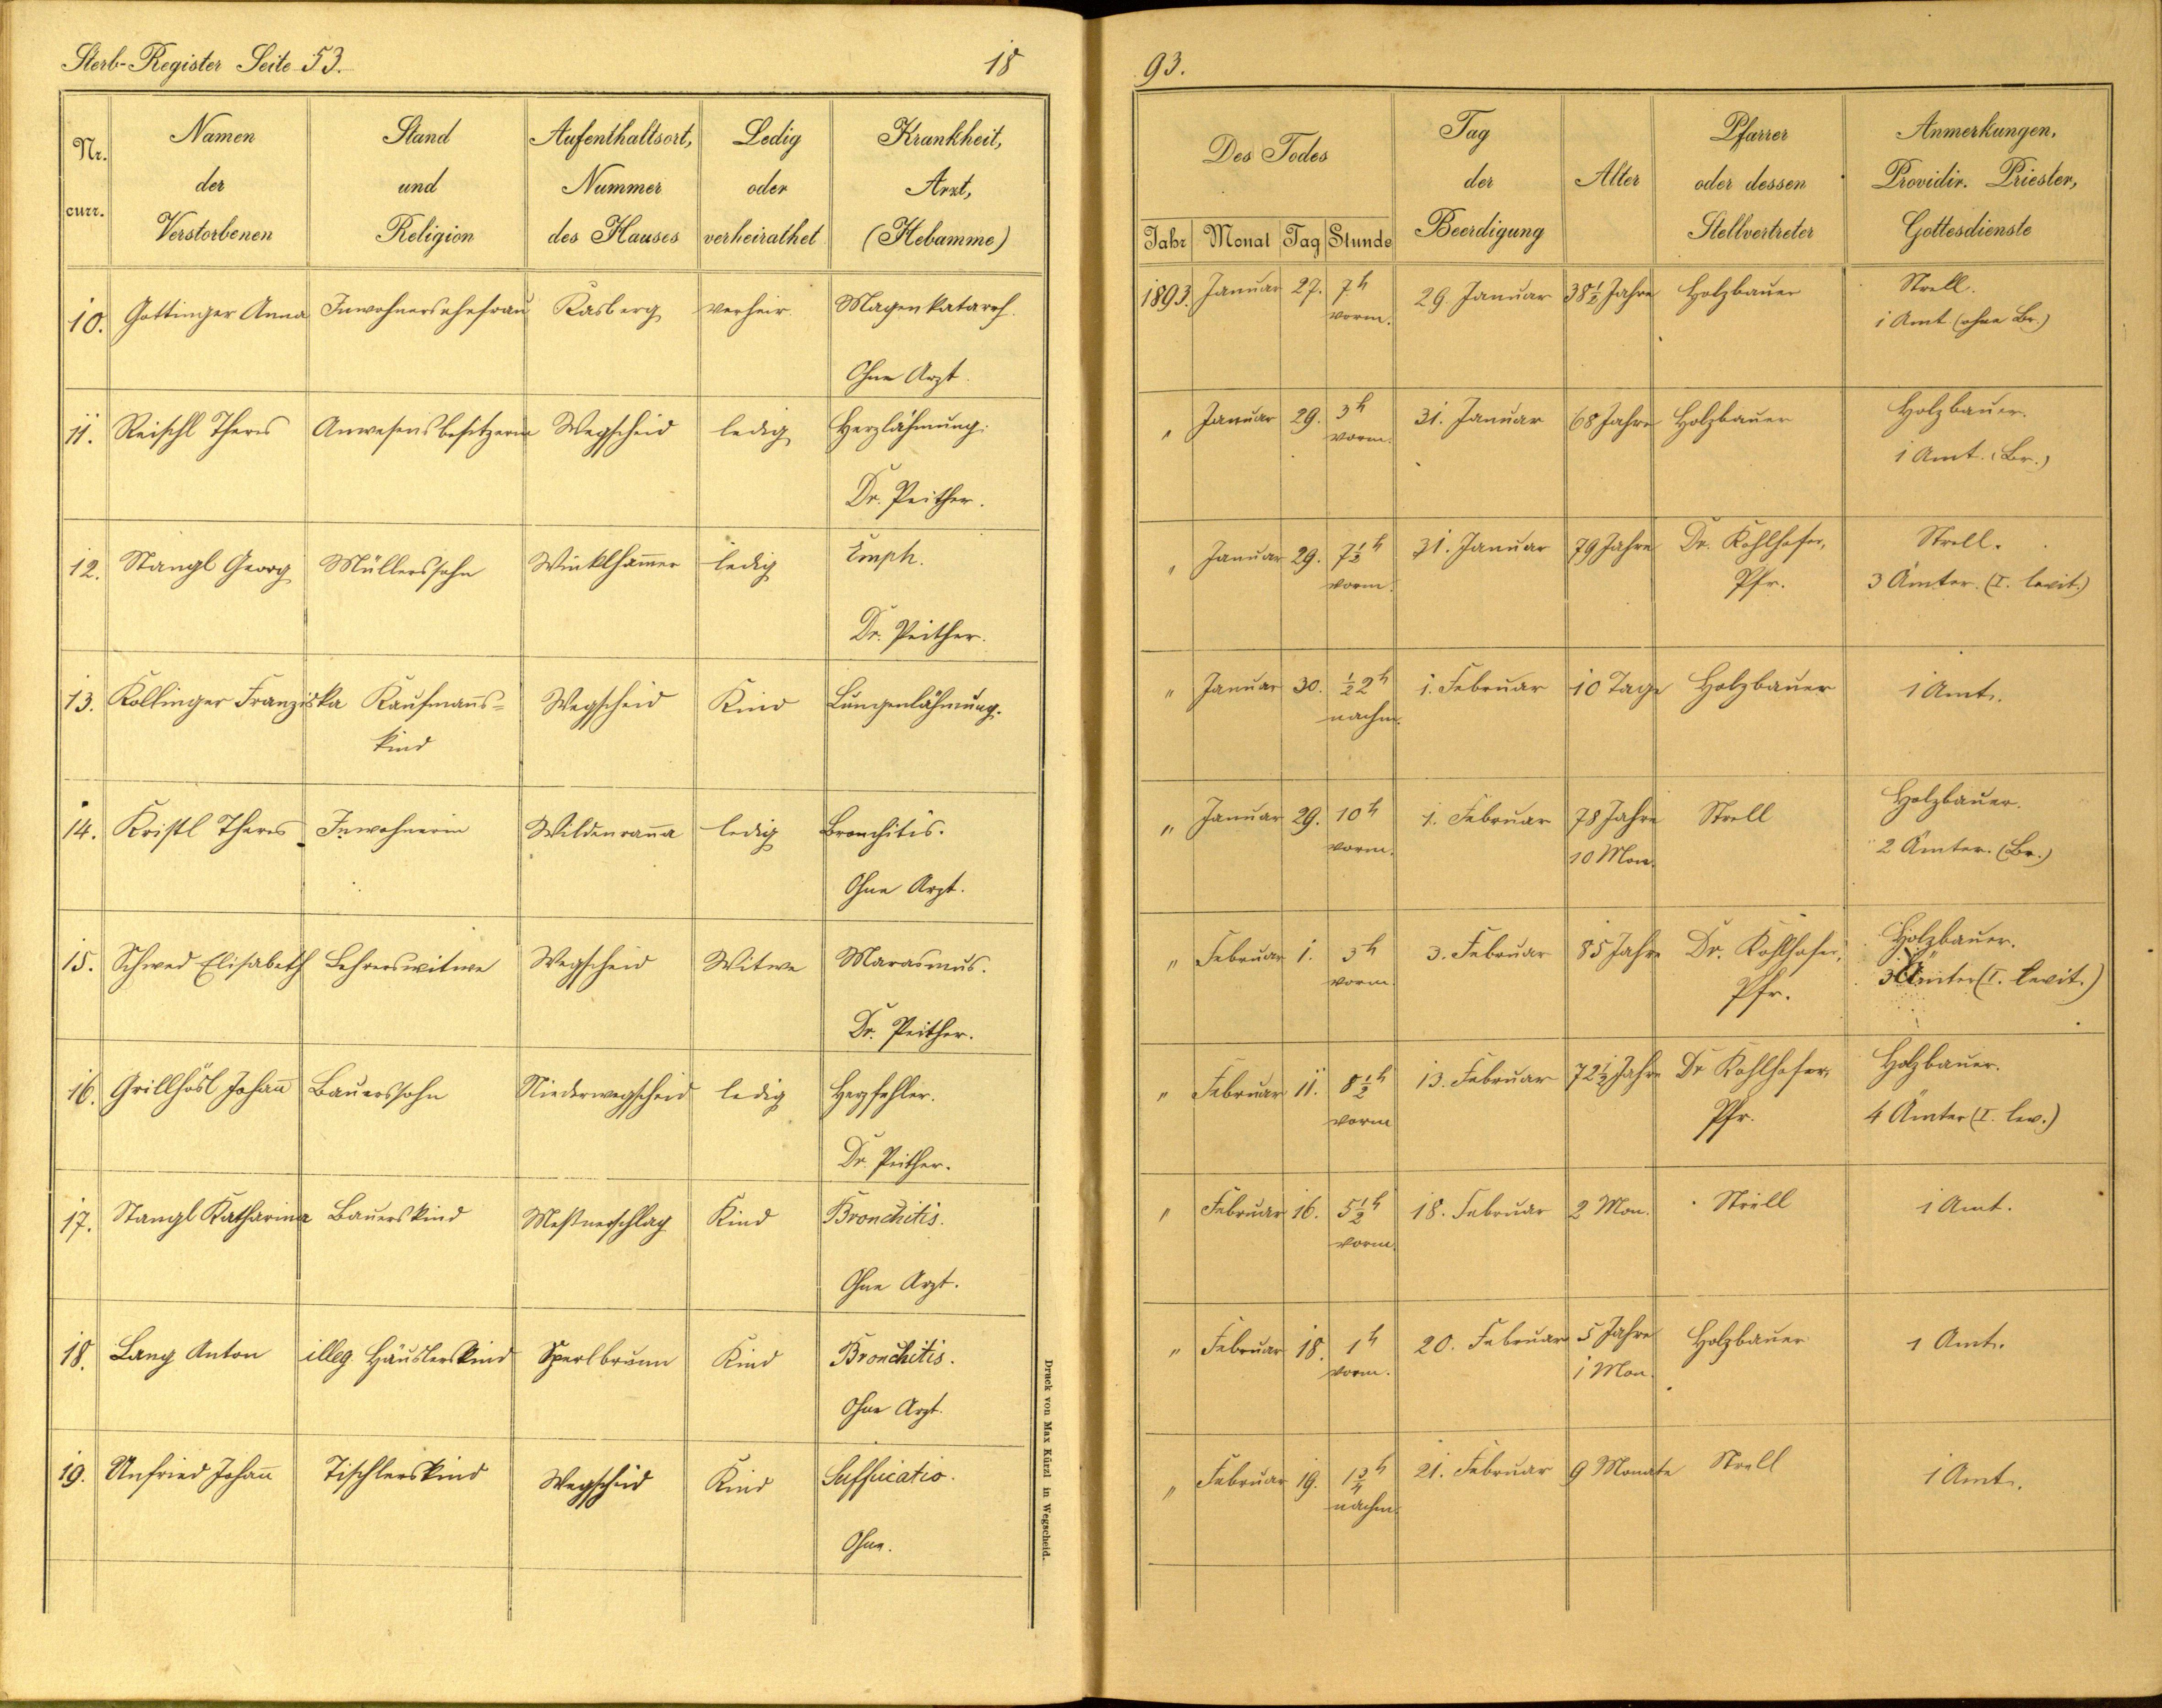 Sterb-Register Seite 53.
18
Nr. curr.
Namen der Verstorbenen
Stand und Religion
Aufenthaltsort, Nummer des Hauses
Ledig oder verheirathet
Krankheit, Arzt, (Hebamme)
10. Gottinger Anna Inwohnersehefrau Kasberg verheir. Magenkatarrh.
Ohne Arzt.
11. Reischl Theres Anwesensbesitzerin Wegscheid ledig Herzlähmung.
Dr. Peither.
12. Stangl Georg Müllerssohn Winklhammer ledig Emph.
Dr. Peither.
13. Kollinger Franziska Kaufmanns- Wegscheid Kind Lungenlähmung.
kind
14. Kristl Theres Inwohnerin Wildenranna ledig Bronchitis.
Ohne Arzt.
15. Schwed Elisabeth Lehrerswitwe Wegscheid Witwe Marasmus.
Dr. Peither.
16. Grillhösl Johann Bauerssohn Niederwegscheid ledig Herzfehler.
Dr. Peither.
17. Stangl Katharina Bauerskind Meßnerschlag Kind Bronchitis.
Ohne Arzt.
18. Lang Anton illeg. Häuslerskind Sperlbrunn Kind Bronchitis.
Ohne Arzt.
19. Unfried Johann Tischlerskind Wegscheid Kind Suffucatio.
Ohne.
Druck von Max Kürzl in Wegscheid.
93.
Des Todes
Jahr Monat Tag Stunde
Tag der Beerdigung
Alter
Pfarrer oder dessen Stellvertreter
Anmerkungen, Providir. Priester, Gottesdienste
1893. Januar 27. 7h 29. Januar 38½ Jahre Holzbauer Strell.
vorm. 1 Amt (ohne Br.)
" Januar 29. 3h 31. Januar 68 Jahre Holzbauer Holzbauer.
vorm. 1 Amt. (Br.)
" Januar 29. 7½h 31. Januar 79 Jahre Dr. Kohlhofer, Strell.
vorm. Pfr. 3 Ämter. (I. levit.)
" Januar 30. ½2h 1. Februar 10 Tage Holzbauer 1 Amt.
nachm.
" Januar 29. 10h 1. Februar 78 Jahre Strell Holzbauer.
vorm. 10 Mon. 2 Ämter. (Br.)
" Februar 1. 3h 3. Februar 85 Jahre Dr. Kohlhofer, Holzbauer.
vorm. Pfr. 3 Ämter (I. levit.)
" Februar 11. 8½h 13. Februar 72½ Jahre Dr Kohlhofer, Holzbauer.
vorm Pfr. 4 Ämter (I. lev.)
" Februar 16. 5½h 18. Februar 2 Mon. Strell 1 Amt.
vorm.
" Februar 18. 1h 20. Februar 5 Jahre Holzbauer 1 Amt.
vorm. 1 Mon.
" Februar 19. 1¾h 21. Februar 9 Monate Strell 1 Amt.
nachm.